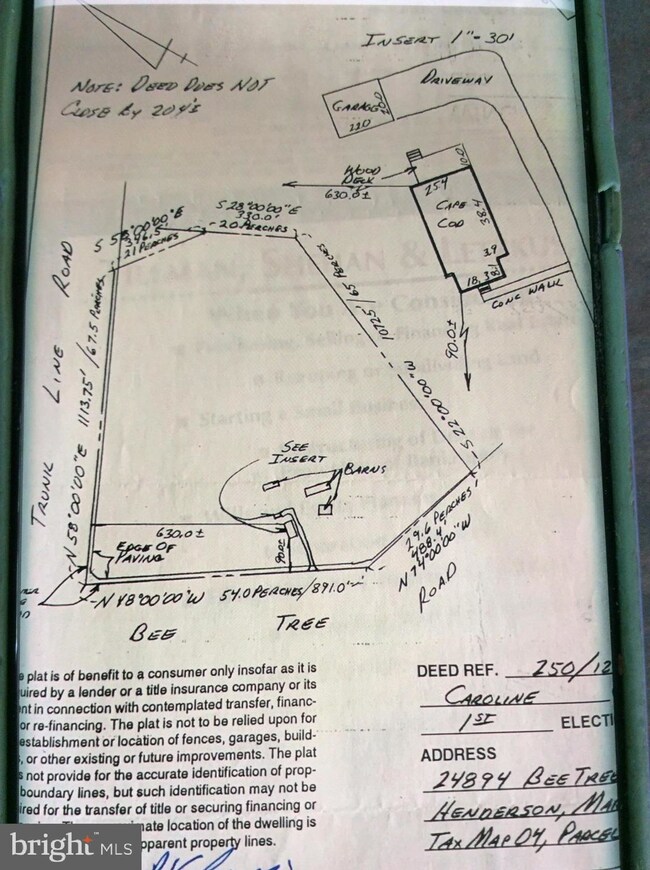 INSERT 1"-30'
DRIVEWAY
NOTE: DEED DOES NOT
CLOSE BY 204'±
GARAGE
20.0
22.0
WOOD
DECK
10.0
630.0±
25.4
CAPE
COD
38.4
3.9
18.3
8.1
CONC WALK
90.0±
S 28°00'00" E
330.0'
20 PERCHES
S 58°00'00" E
346.5
21 PERCHES
1072.5' / 65 PERCHES
S 22°00'00" W
TRUNK LINE ROAD
N 58°00'00" E 1113.75' / 67.5 PERCHES
SEE
INSERT
BARNS
630.0±
90.0±
EDGE OF
PAVING
29.6 PERCHES
488.4'
N 74°00'00" W
N 48°00'00" W 54.0 PERCHES/891.0'
BEE TREE ROAD
plat is of benefit to a consumer only insofar as it is
by a lender or a title insurance company or its
in connection with contemplated transfer, financ-
or re-financing. The plat is not to be relied upon for
establishment or location of fences, garages, build-
, or other existing or future improvements. The plat
not provide for the accurate identification of prop-
boundary lines, but such identification may not be
for the transfer of title or securing financing or
location of the dwelling is
apparent property lines.
DEED REF. 250/12
CAROLINE
1ST ELECTI
ADDRESS
24894 BEE TREE
HENDERSON, MA
TAX MAP 04, PARCEL
bright MLS